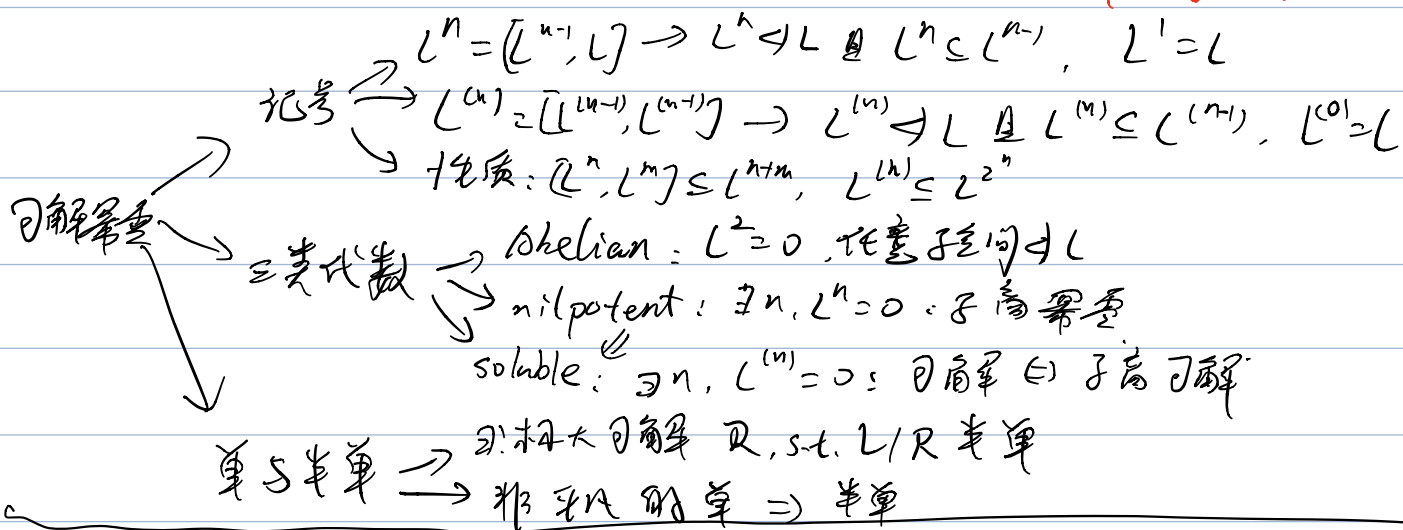 L^n = [L^{n-1}, L] → L^n ⊲ L 且 L^n ⊆ L^{n-1}, L^1 = L
记号
L^{(n)} = [L^{(n-1)}, L^{(n-1)}] → L^{(n)} ⊲ L 且 L^{(n)} ⊆ L^{(n-1)}, L^{(0)} = L
性质: [L^n, L^m] ⊆ L^{n+m}, L^{(n)} ⊆ L^{2^n}
可解幂零
三类代数
Abelian: L^2 = 0, 任意子空间 ⊲ L
nilpotent: ∃n, L^n = 0: 子商幂零
soluble: ∃n, L^{(n)} = 0: 可解 ⇔ 子商可解
单与半单
∃! 极大可解 R, s.t. L/R 半单
非平凡的单 ⇒ 半单